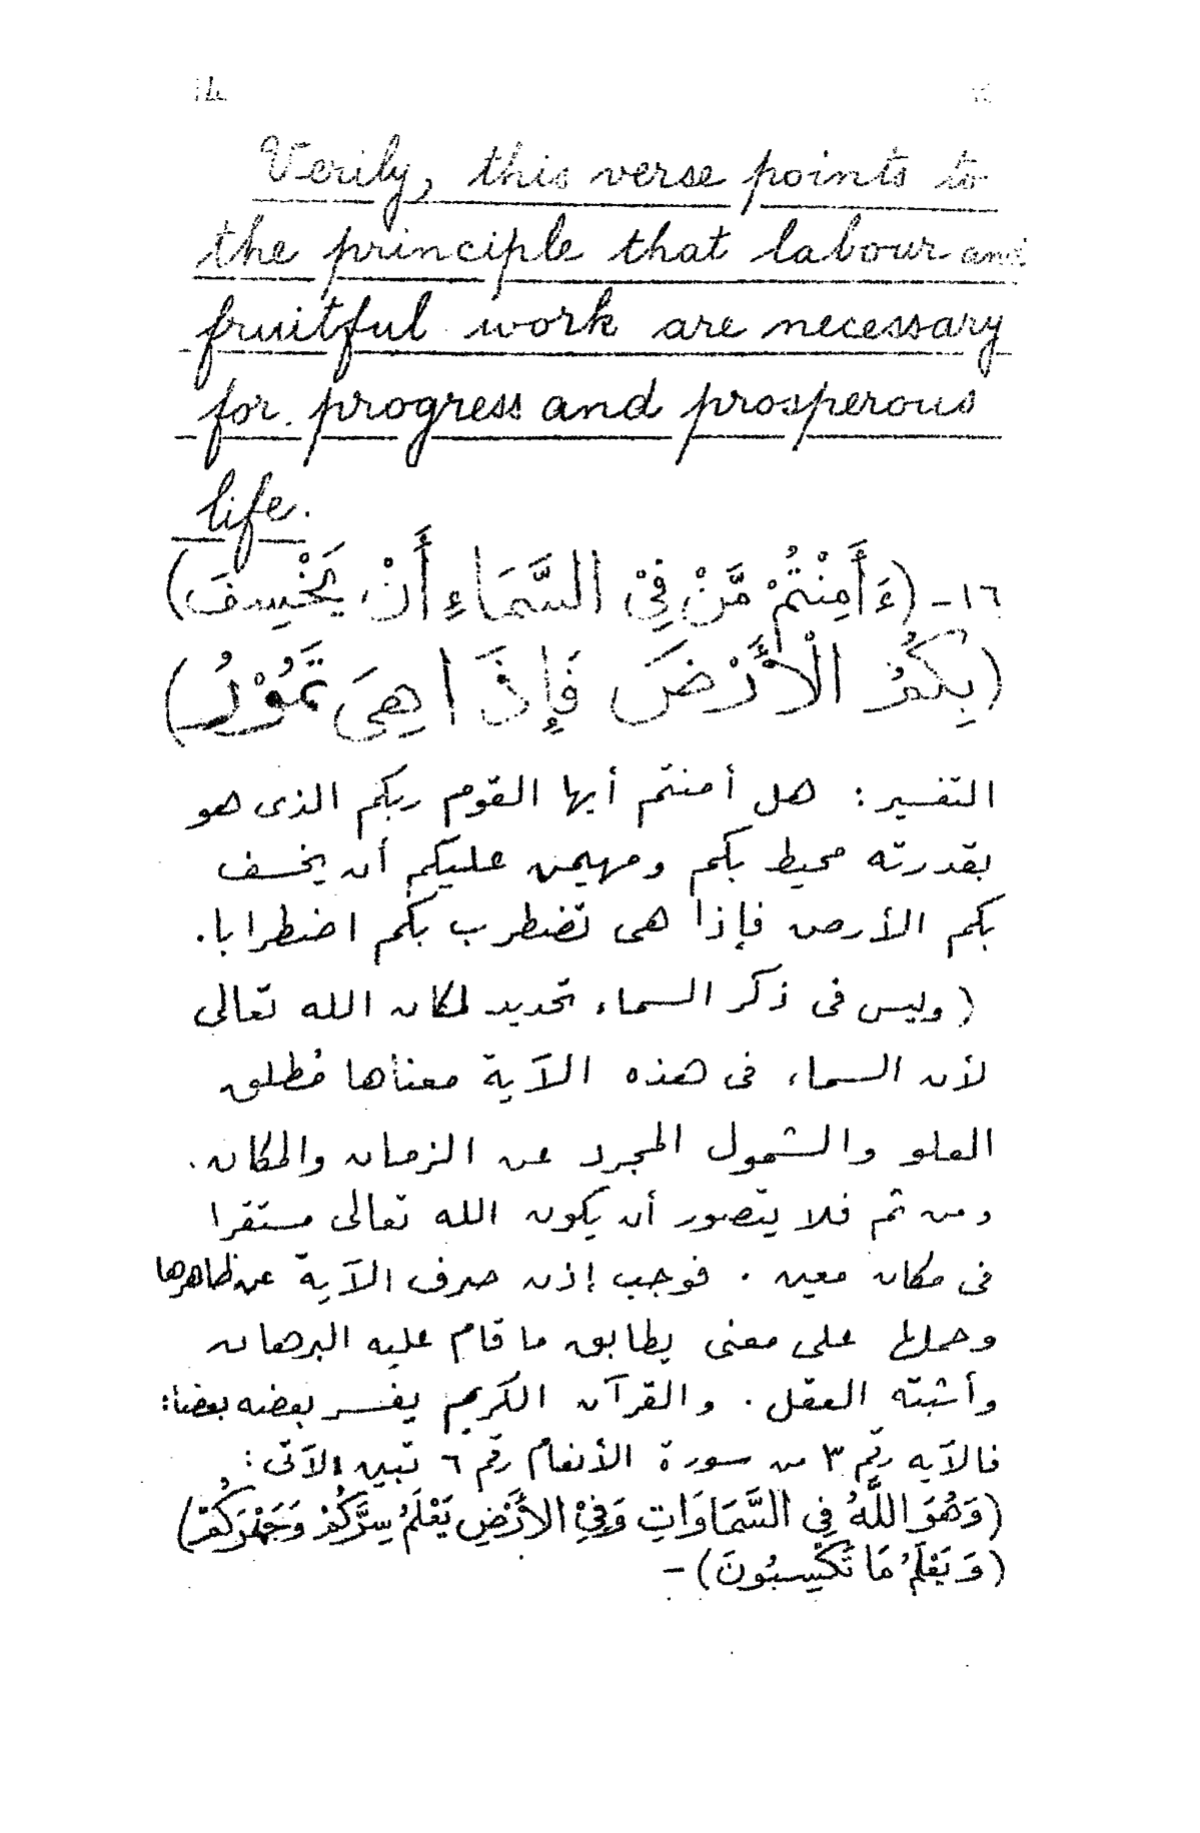 14
Verily, this verse points to
the principle that labour and
fruitful work are necessary
for progress and prosperous
life.
١٦- (ءَأَمِنْتُمْ مَّنْ فِيْ السَّمَاءِ أَنْ يَخْسِفَ)
(بِكُمُ الْأَرْضَ فَإِذَا هِيَ تَمُوْرُ)
التفسير: هل أمنتم أيها القوم ربكم الذى هو
بقدرته محيط بكم ومهيمن عليكم أن يخسف
بكم الأرض فإذا هى تضطرب بكم اضطرابا.
(وليس فى ذكر السماء تحديد لمكان الله تعالى
لأن السماء فى هذه الآية معناها مُطلق
العلو والشمول المجرد عن الزمان والمكان.
ومن ثم فلا يتصور أن يكون الله تعالى مستقرا
فى مكان معين. فوجب إذن صرف الآية عن ظاهرها
وحملها على معنى يطابق ما قام عليه البرهان
وأثبته العقل. والقرآن الكريم يفسر بعضه بعضا:
فالآيه رقم ٣ من سورة الأنعام رقم ٦ تبين الآتى:
(وَهُوَ اللَّهُ فِى السَّمَاوَاتِ وَفِيْ الأَرْضِ يَعْلَمُ سِرَّكُمْ وَجَهْرَكُمْ)
(وَيَعْلَمُ مَا تَكْسِبُونَ)-